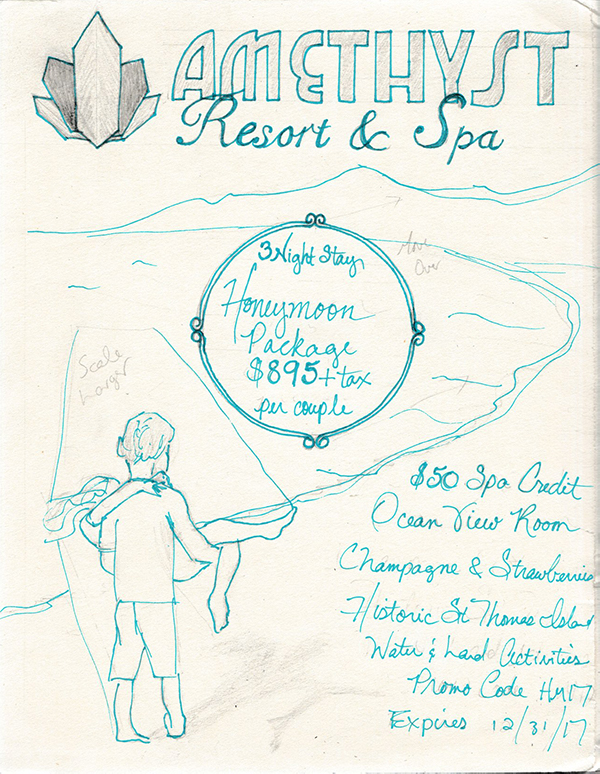 AMETHYST
Resort & Spa
3 Night Stay
Honeymoon
Package
$895 + tax
per couple
Move
Over
Scale
Larger
$50 Spa Credit
Ocean View Room
Champagne & Strawberries
Historic St Thomas Island
Water & Land Activities
Promo Code HM17
Expires 12/31/17